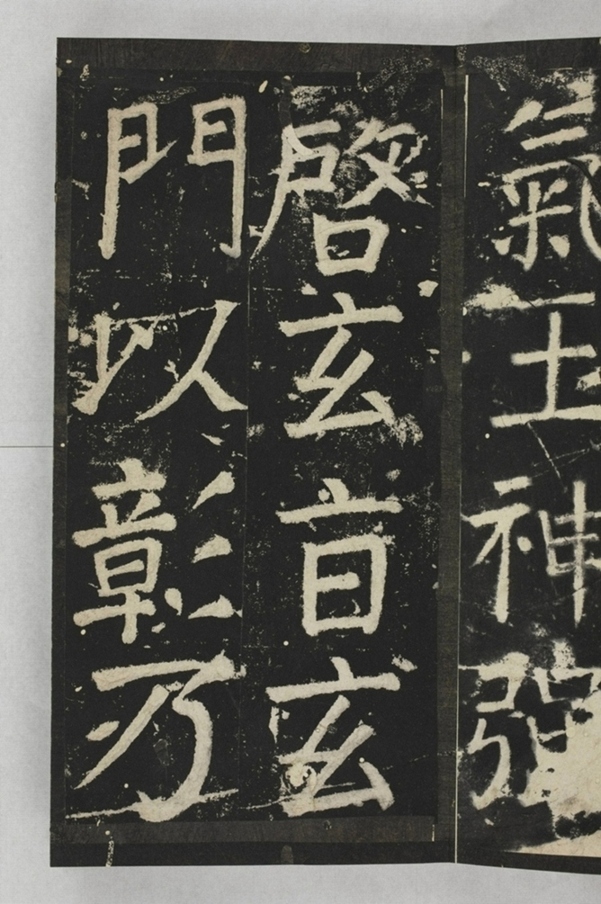 氣王神強
啓玄旨玄
門以彰乃